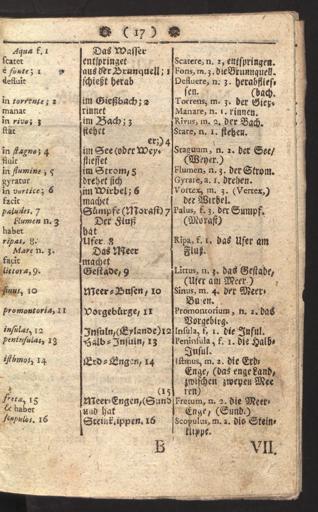 ( 17 )
Aqua f. 1 Das Wasser
scatet entspringet Scatere, n. 2, entspringen.
è fonte; 1 aus der Brunquell; 1 Fons, m. 3. die Brunquell.
defluit schießt herab Defluere, n. 3. herabfließ-
sen. (bach.
in torrente; 2 im Gießbach; 2 Torrens, m. 3. der Gieß-
manat rinnet Manare, n. 1. rinnen.
in rivo; 3 im Bach; 3 Rivus, m. 2. der Bach.
stat stehet State, n. 1. stehen.
er;) 4
in stagno; 4 im See (oder Wey- Stagnum, n. 2. der See/
fluit fliesset (Weyer.)
in flumine; 5 im Strom, 5 Flumen, n. 3. der Strom.
gyratur drehet sich Gyrare, a. 1. drehen.
in vortice; 6 im Wirbel; 6 Vortex, m. 3. (Vertex,)
facit machet der Wirbel.
paludes. 7 Sümpfe (Morast) 7 Palus, f. 3. der Sumpf.
Flumen n. 3 Der Fluß (Morast)
habet hat
ripas, 8. Ufer. 8 Ripa, f. 1. das Ufer am
Mare n. 3. Das Meer Fluß.
facit machet
littora, 9. Gestade, 9 Littus, n. 3. das Gestade,
(Ufer am Meer.)
sinus, 10 Meer-Busen, 10 Sinus, m. 4. der Meer-
Busen.
promontoria, 11 Vorgebürge, 11 Promontorium, n. 2. das
Vorgebirg.
insulas, 12 Insuln,(Eylande)12 Insula, f. 1. die Insul.
peninsulas, 13 Halb-Insuln, 13 Peninsula, f. 1. die Halb-
Insul.
isthmos, 14 Erd-Engen, 14 Isthmus, m. 2. die Erd-
Enge, (das enge Land,
zwischen zweyen Mee-
(15 ren)
freta, 15 Meer-Engen,(Sund Fretum, n. 2. die Meer-
& habet und hat Enge, (Sund.)
scopulos. 16 Steinklippen. 16 Scopulus, m. 2. die Stein-
klippe.
B VII.